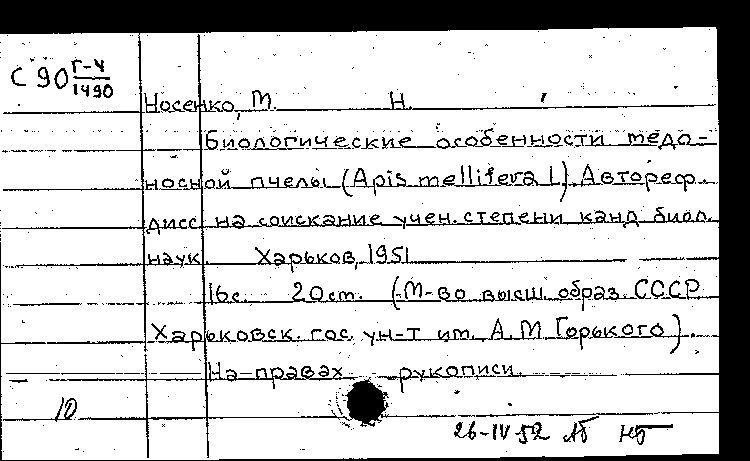 С 90 Г-4/1490
Носенко, М. Н.
Биологические особенности медо-
носной пчелы (Apis mellifera L). Автореф.
дисс на соискание учен. степени канд биол.
наук. Харьков, 1951
16с. 20см. (М-во высш. образ. СССР
Харьковск. гос. ун-т им. А. М. Горького).
На правах рукописи.
10
26-IV 52